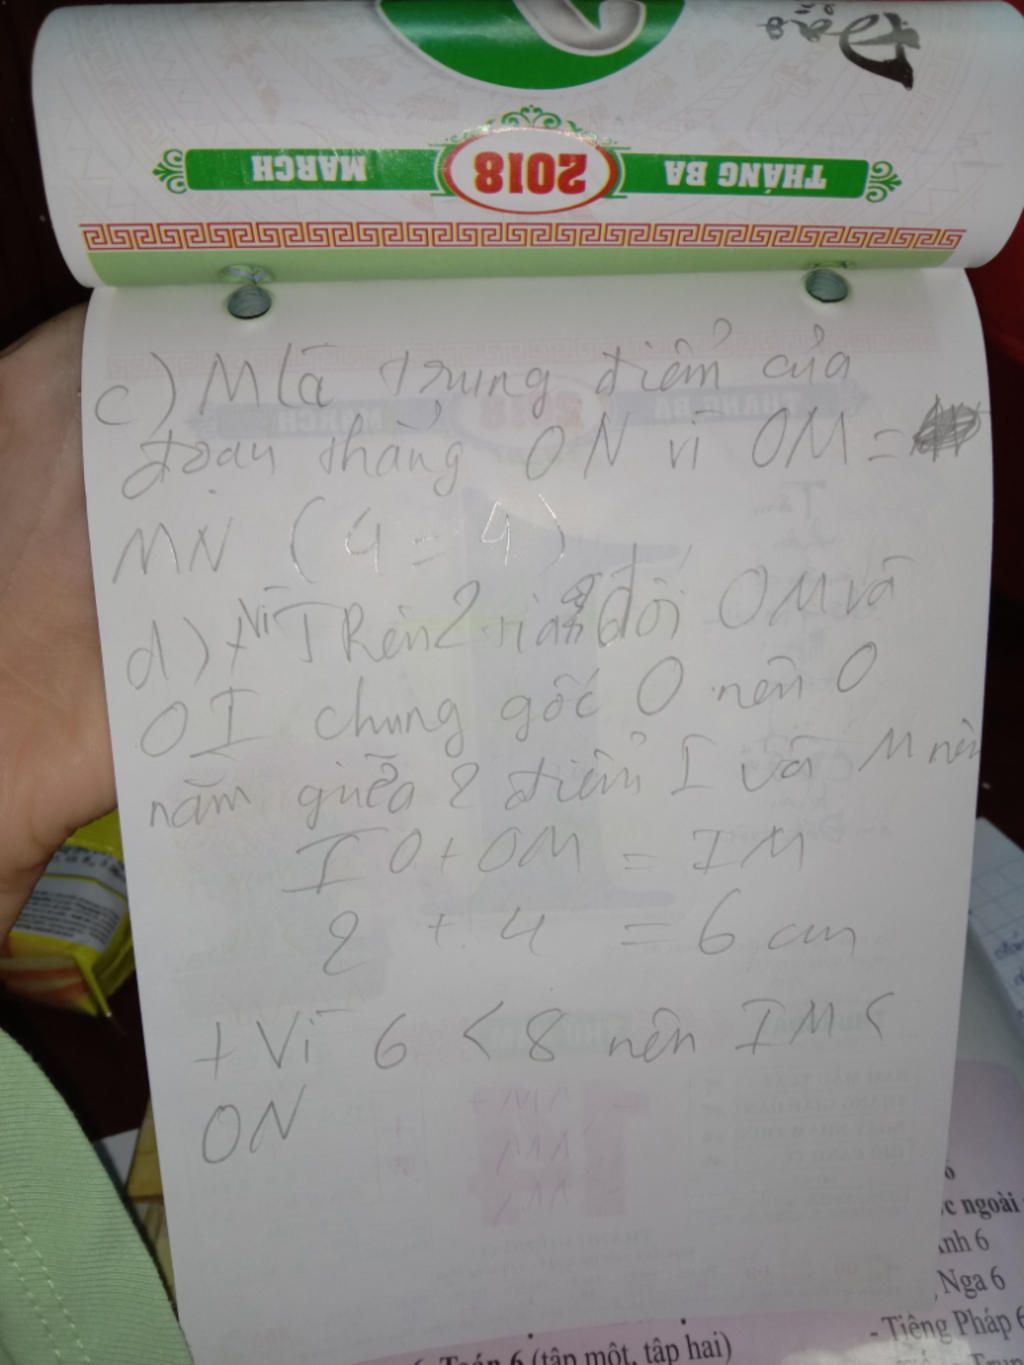 THÁNG BA 2018 MARCH
c) M là trung điểm của
đoạn thẳng ON vì OM =
MN ( 4 = 4 )
d) + Vì TRên 2 tia đối OM và
OI chung gốc O nên O
nằm giữa 2 điểm I và M nên
IO + OM = IM
2 + 4 = 6 cm
+ Vì 6 < 8 nên IM <
ON
6
ngoài
Anh 6
Nga 6
- Tiếng Pháp 6
Toán 6 (tập một, tập hai)